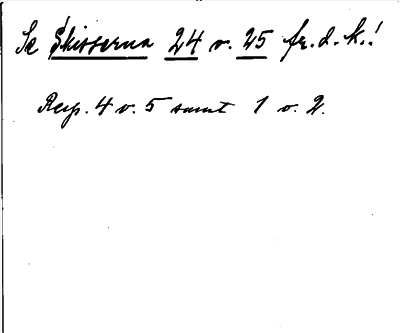 Se Skisserna 24 o. 25 fr. d. k.!
Resp. 4 o. 5 samt 1 o. 2.